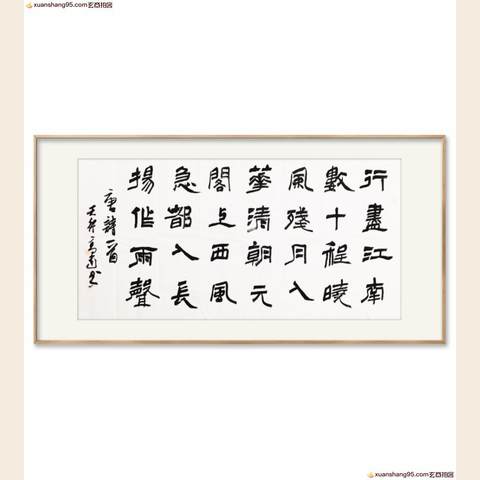 xuanshang95.com
行盡江南
數十程曉
風殘月入
華清朝元
閣上西風
急都入長
揚作雨聲
唐詩一首
xuanshang95.com